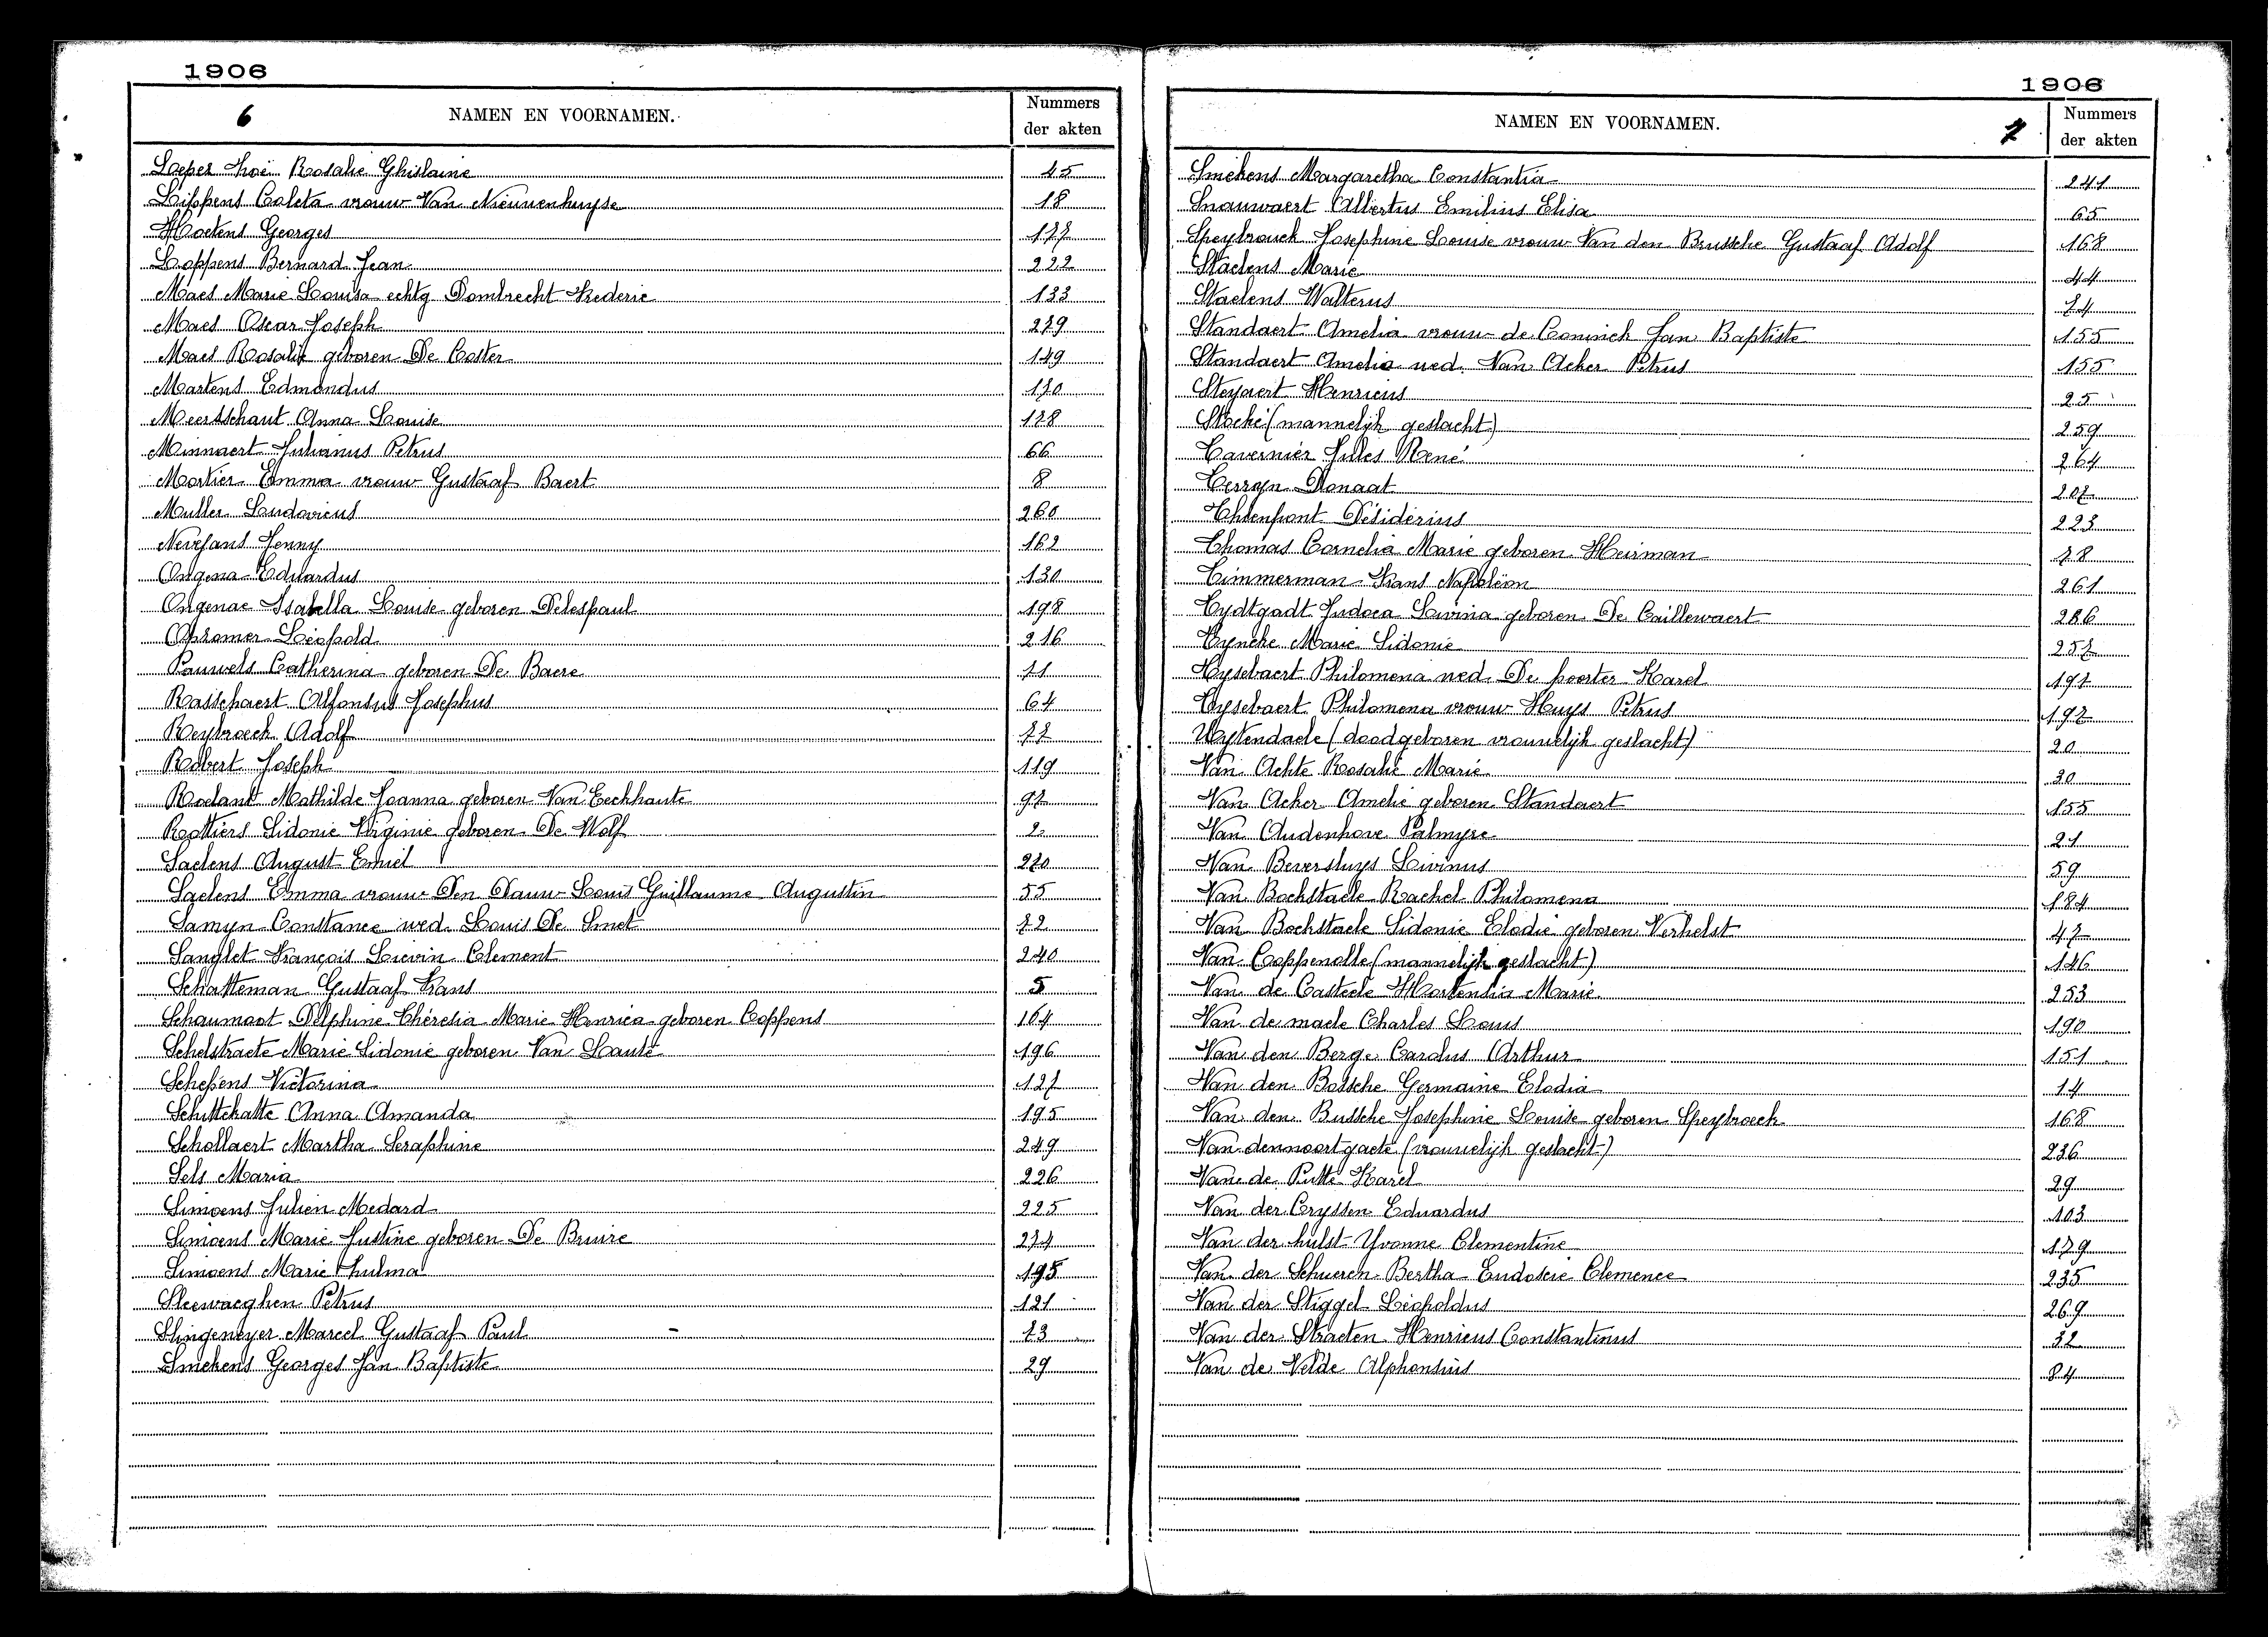 1906
6
NAMEN EN VOORNAMEN.
Nummers
der akten
Loeper Rosalie Ghislaine 45
Lippens Coleta vrouw Van Nieuwenhuyse 18
Georges 177
Loppens Bernard Jean 222
Maes Marie Louisa echtg Dombrecht Frederic 133
Maes Oscar Joseph 279
Maes Rosalie geboren De Coster 149
Martens Edmondus 170
Meersschaut Anna Louise 178
Minnaert Julianus Petrus 66
Mortier Emma vrouw Gustaaf Baert 8
Muller Ludovicus 260
Nevejans Jenny 162
Ongena Eduardus 130
Ongenae Isabella Louise geboren Delespaul 198
Opsomer Léopold 216
Pauwels Catherina geboren De Baere 11
Rasschaert Alfonsus Josephus 64
Reybroeck Adolf 77
Robert Joseph 119
Roelant Mathilde Joanna geboren Van Eeckhaute 97
Rottiers Sidonie Virginie geboren De Wolf 2
Saelens August Emiel 270
Saelens Emma vrouw Den Dauw Louis Guillaume Augustin 55
Samyn Constance wed. Louis De Smet 72
Sanglet François Lievin Clement 240
Schatteman Gustaaf Frans 5
Schaumoot Delphine Thérésia Marie Henrica geboren Coppens 164
Schelstraete Marie Sidonie geboren Van Laute 196
Schepens Victorina 127
Schittekatte Anna Amanda 195
Schollaert Martha Seraphine 249
Sels Maria 226
Simoens Julien Medard 225
Simoens Marie Justine geboren De Bruire 274
Simoens Marie Thulma 195
Sleewaeghen Petrus 121
Slingeneyer Marcel Gustaaf Paul 73
Smekens Georges Jan Baptiste 29
1906
NAMEN EN VOORNAMEN.
7
Nummers
der akten
Smekens Margaretha Constantia 241
Snauwaert Albertus Emilius Elisa 65
Speybrouck Josephine Louise vrouw Van den Bussche Gustaaf Adolf 168
Staelens Marie 44
Staelens Walterus 74
Standaert Amelia vrouw de Coninck Jan Baptiste 155
Standaert Amelia wed. Van Acker Petrus 155
Steyaert Henricus 25
Stocké (mannelijk geslacht) 259
Tavernier Jules René 264
Terryn Donaat 207
Thienpont Désidérius 223
Thomas Cornelia Marie geboren Heirman 78
Timmerman Frans Napoléon 261
Tydtgadt Judoca Livina geboren De Caillewaert 286
Tyncke Marie Sidonie 257
Tysebaert Philomena wed. De poorter Karel 197
Tysebaert Philomena vrouw Huys Petrus 197
Uytendaele (doodgeboren vrouwelijk geslacht) 20
Van Achte Rosalie Marie 30
Van Acker Amelie geboren Standaert 155
Van Audenhove Palmyre 21
Van Beversluys Livinus 59
Van Bockstaele Rachel Philomena 184
Van Bockstaele Sidonie Elodie geboren Verhelst 47
Van Coppenolle (mannelijk geslacht) 146
Van de Casteele Hortensia Marie 253
Van de maele Charles Louis 190
Van den Berge Carolus Arthur 151
Van den Bossche Germaine Elodia 14
Van den Bussche Josephine Louise geboren Speybroeck 168
Van dennoortgaete (vrouwelijk geslacht) 236
Van de Putte Karel 29
Van der Cryssen Eduardus 103
Van der hulst Yvonne Clementine 179
Van der Schueren Bertha Eudoxie Clemence 235
Van der Stiggel Léopoldus 269
Van der Straeten Henricus Constantinus 32
Van de Velde Alphonsius 84